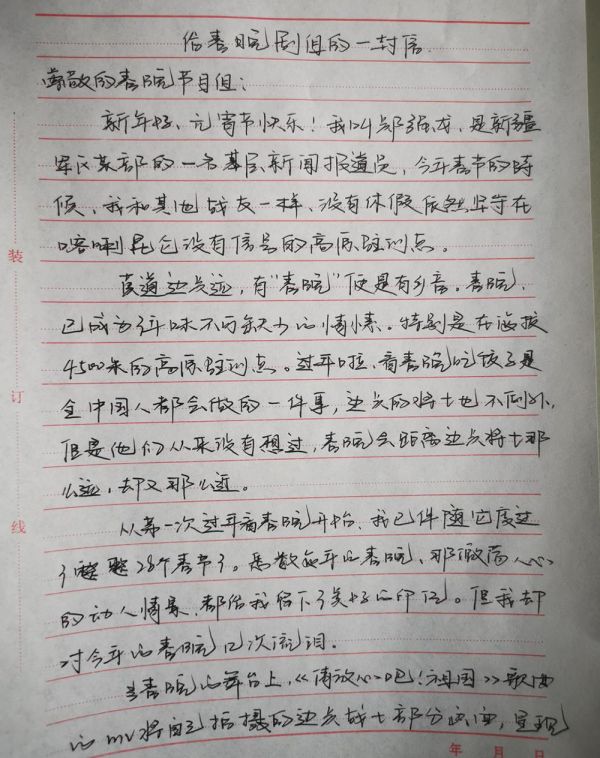 给春晚剧组的一封信
尊敬的春晚节目组：
新年好、元宵节快乐！我叫郑强龙，是新疆
军区某部的一名基层新闻报道员，今年春节的时
候，我和其他战友一样、没有休假依然坚守在
喀喇昆仑没有信号的高原驻训点。
莫道边关远，有“春晚”便是有乡音。春晚，
已成为年味不可缺少的情愫。特别是在海拔
4500米的高原驻训点。过年啦，看春晚吃饺子是
全中国人都会做的一件事，边关的将士也不例外，
但是他们从来没有想过，春晚会距离边关将士那
么远，却又那么近。
从第一次过年看春晚开始，我已伴随它度过
了整整28个春节了。悉数每年的春晚，那激荡人心
的动人情景，都给我留下了美好的印记。但我却
对今年的春晚几次流泪。
当春晚的舞台上，《请放心吧！祖国》歌曲
的mv将自己拍摄的边关战士部分画面，呈现
装
订
线
年 月 日